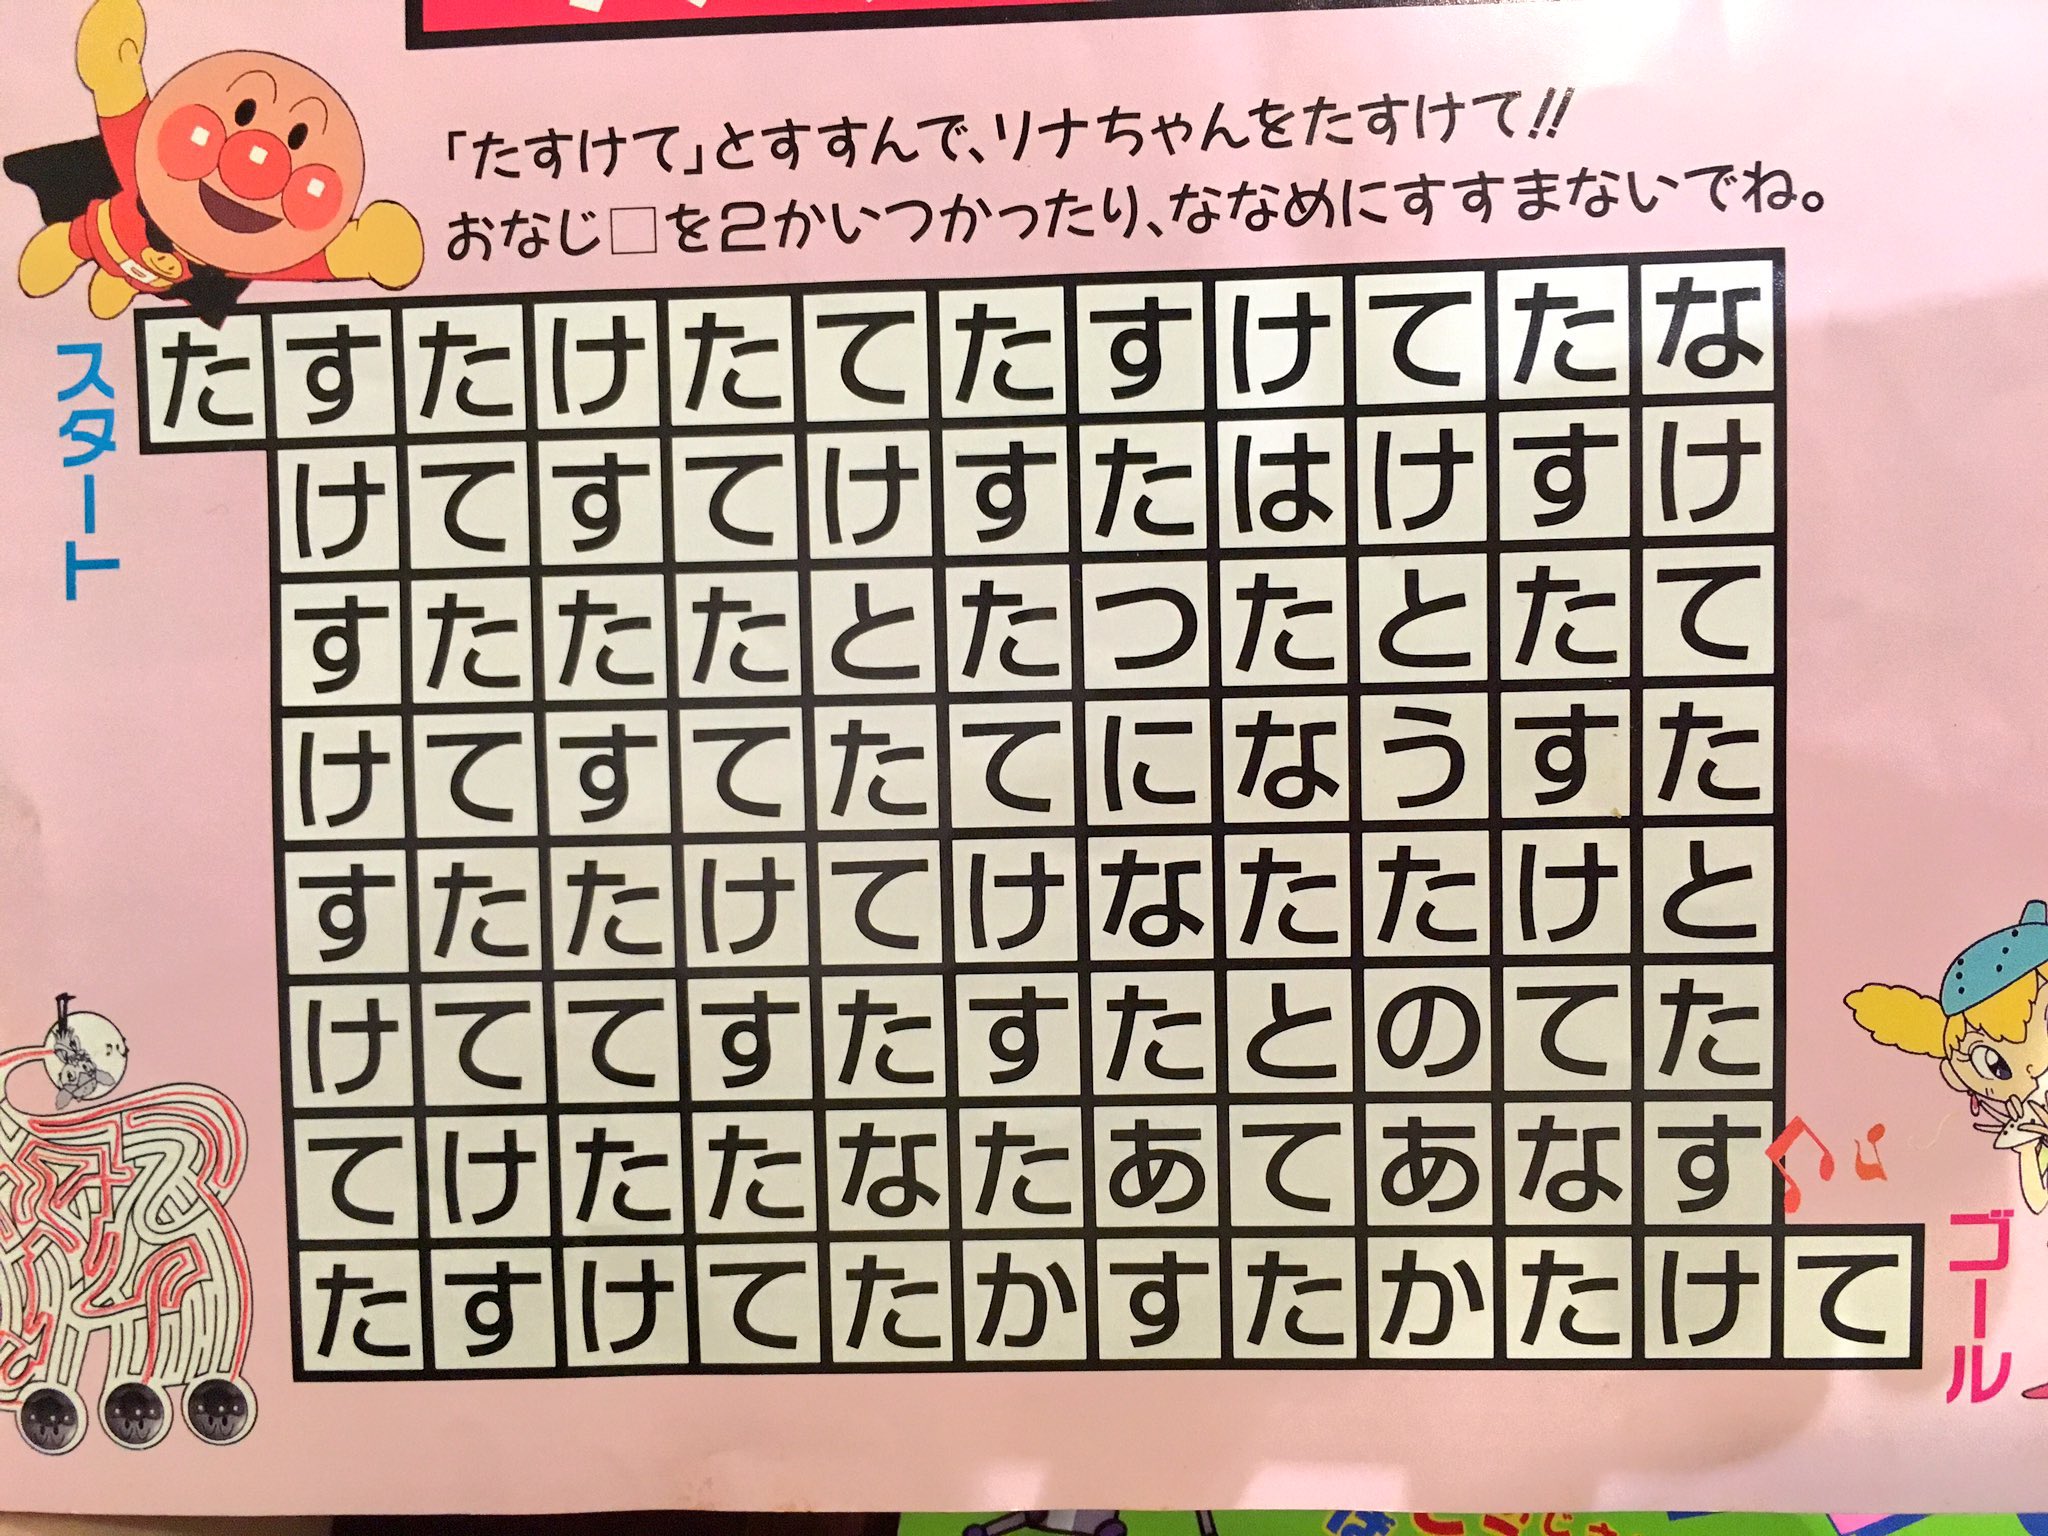 「たすけて」とすすんで、リナちゃんをたすけて!!
おなじ□を2かいつかったり、ななめにすすまないでね。
スタート
たすたけたてたすけてたな
けてすてけすたはけすけ
すたたたとたつたとたて
けてすてたてになうすた
すたたけてけなたたけと
けててすたすたとのてた
てけたたなたあてあなす
たすけてたかすたかたけて
ゴール